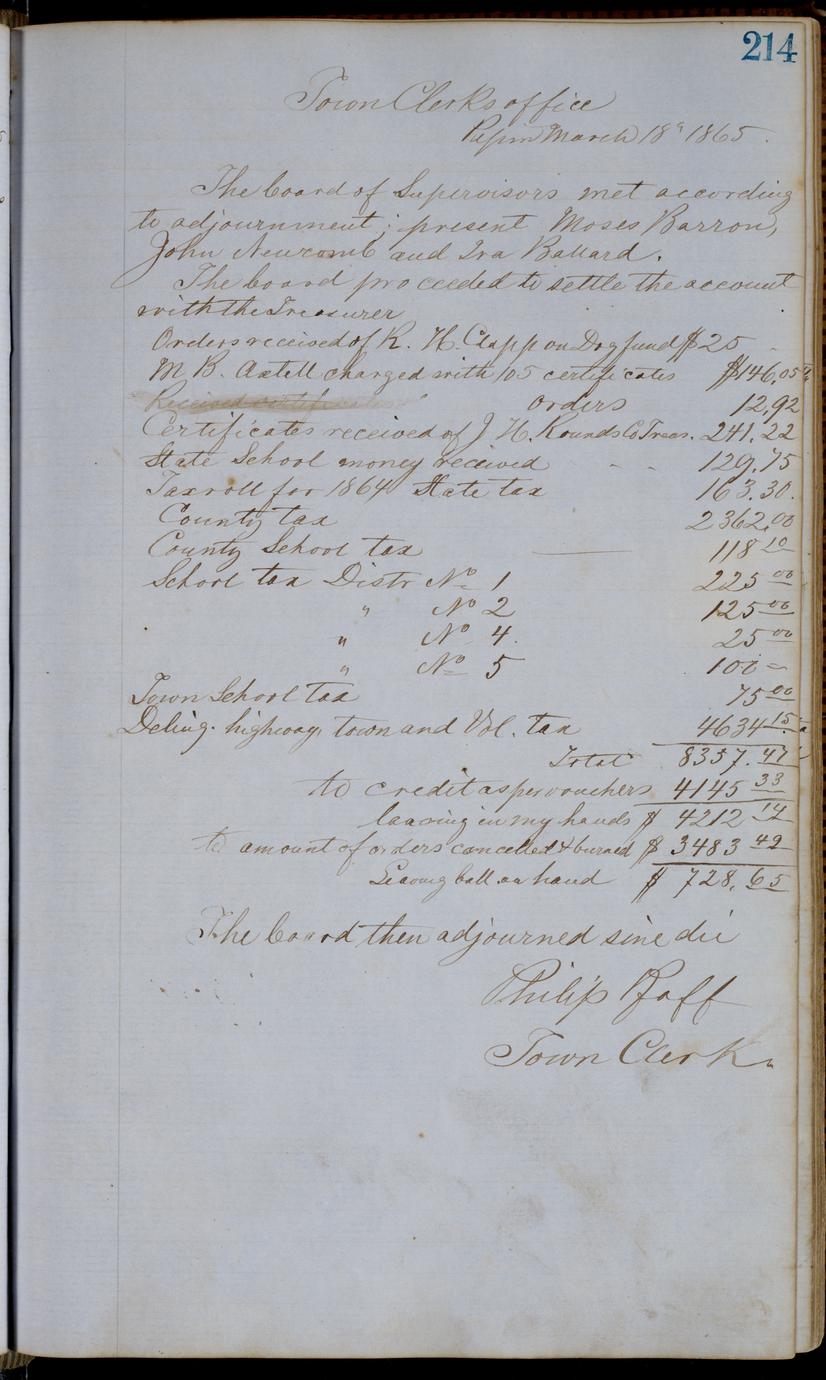 214
Town Clerks office
Pepin March 18th 1865.
The board of Supervisors met according
to adjournment; present Moses Barron,
John Newcomb and Ira Ballard.
The board proceeded to settle the account
with the Treasurer
Orders received of R. H. Clapp on Dog fund $25 -
M B. Axtell charged with 105 certificates $146,05
Received certificates orders 12,92
Certificates received of J H. Rounds Co Treas. 241.22
State School money received - - - 129.75
Tax roll for 1864 State tax 163.30.
County tax 2362,00
County School tax 118 10
School tax Distr No 1 225 00
" No 2 125 00
" No 4. 25 00
" No 5 100 -
Town School tax 75 00
Delinq. highway, town and Vol. tax 4634 15
Total 8357.47
to credit as per vouchers 4145 33
leaving in my hands $ 4212 14
to amount of orders cancelled & burned $ 3483 49
Leaving ball. on hand $ 728,65
The board then adjourned sine die
Philip Pfaff
Town Clerk